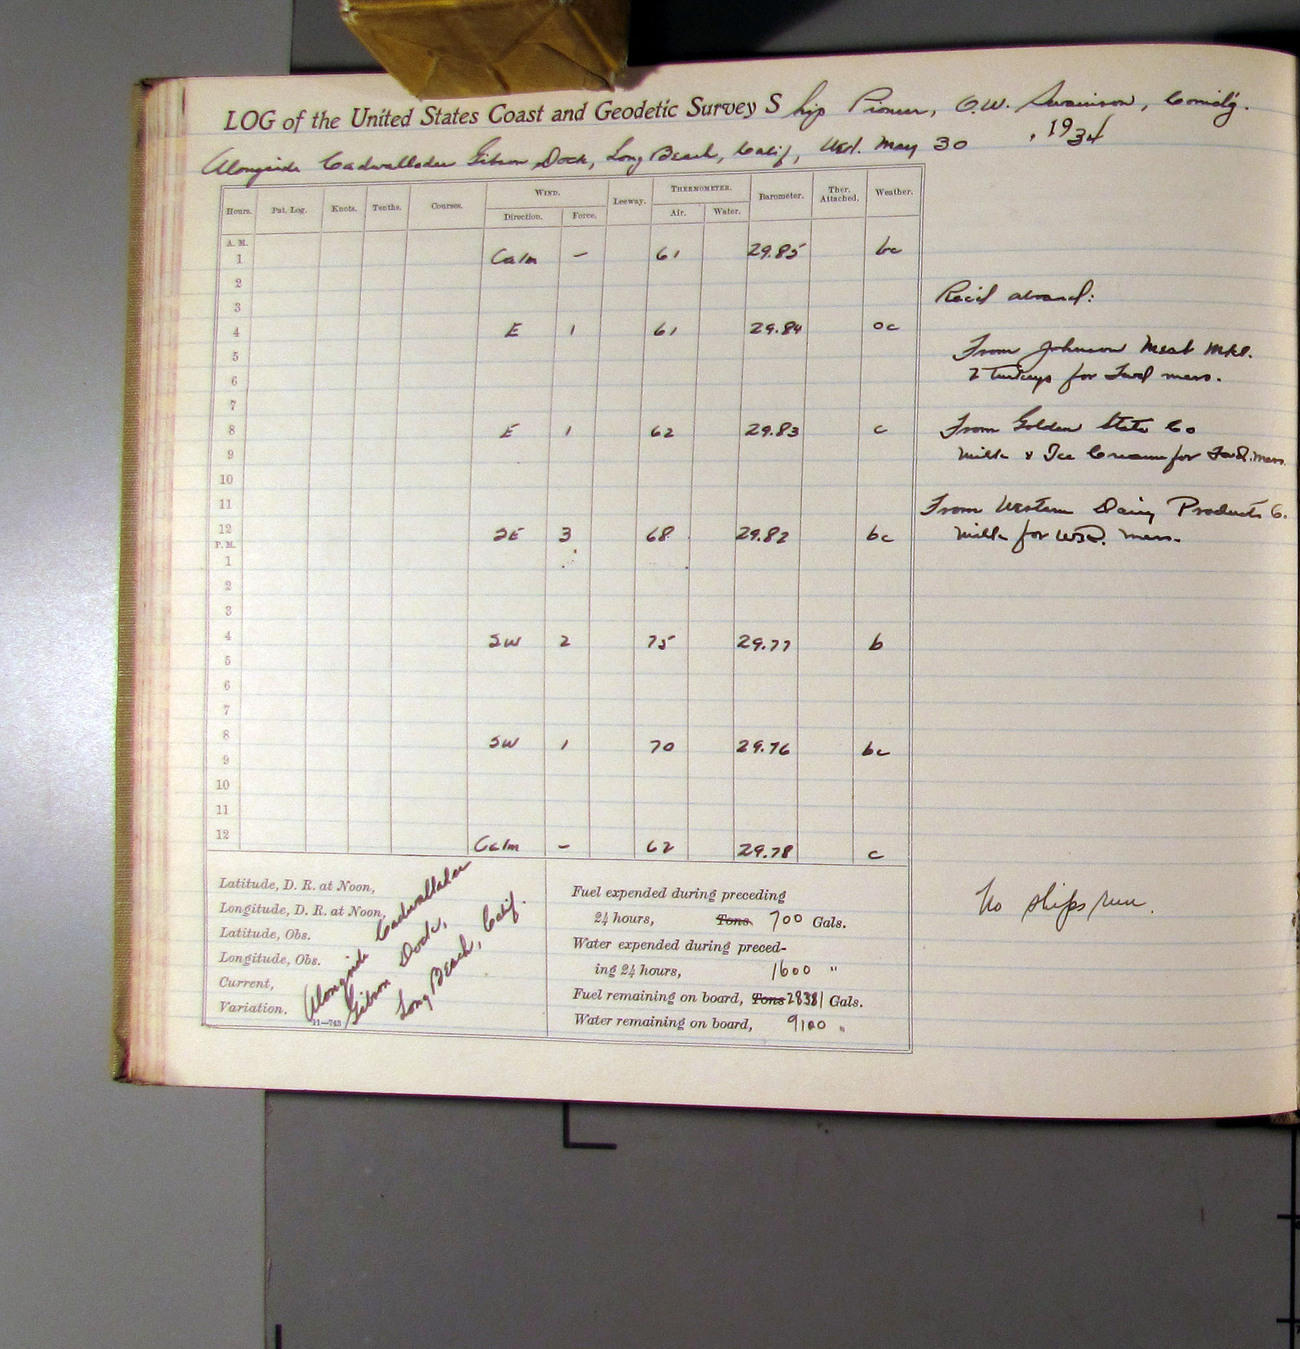 LOG of the United States Coast and Geodetic Survey Ship Pioneer, O.W. Swainson, Comd'g.
Alongside Cadwallader Gibson Dock, Long Beach, Calif, Wed. May 30, 1934
WIND. THERMOMETER.
Hours. Pat. Log. Knots. Tenths. Courses. Direction. Force. Leeway. Air. Water. Barometer. Ther. Attached. Weather.
A. M.
1 Calm – 61 29.85 bc
2
3
4 E 1 61 29.84 oc
5
6
7
8 E 1 62 29.83 c
9
10
11
12 SE 3 68 29.82 bc
P. M.
1
2
3
4 SW 2 75 29.77 b
5
6
7
8 SW 1 70 29.76 bc
9
10
11
12 Calm – 62 29.78 c
Rec'd aboard:
From Johnson Meat Mkt.
2 Turkeys for Fwd mess.
From Golden State Co
Milk & Ice Cream for Fwd. mess.
From Western Dairy Products Co.
Milk for W.R. mess.
Latitude, D. R. at Noon,
Longitude, D. R. at Noon,
Latitude, Obs.
Longitude, Obs.
Current,
Variation.
11—743
Alongside Cadwallader
Gibson Dock,
Long Beach, Calif.
Fuel expended during preceding
24 hours, Tons 700 Gals.
Water expended during preced-
ing 24 hours, 1600 "
Fuel remaining on board, Tons 28381 Gals.
Water remaining on board, 9100 "
No ships run.